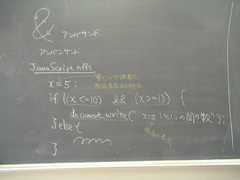 & アンパサンド
アンパサンド
JavaScriptの例
x=5;
if ((x<=10) && (x>=1)) {
document.write("xは1と10の間の数");
}else{
}